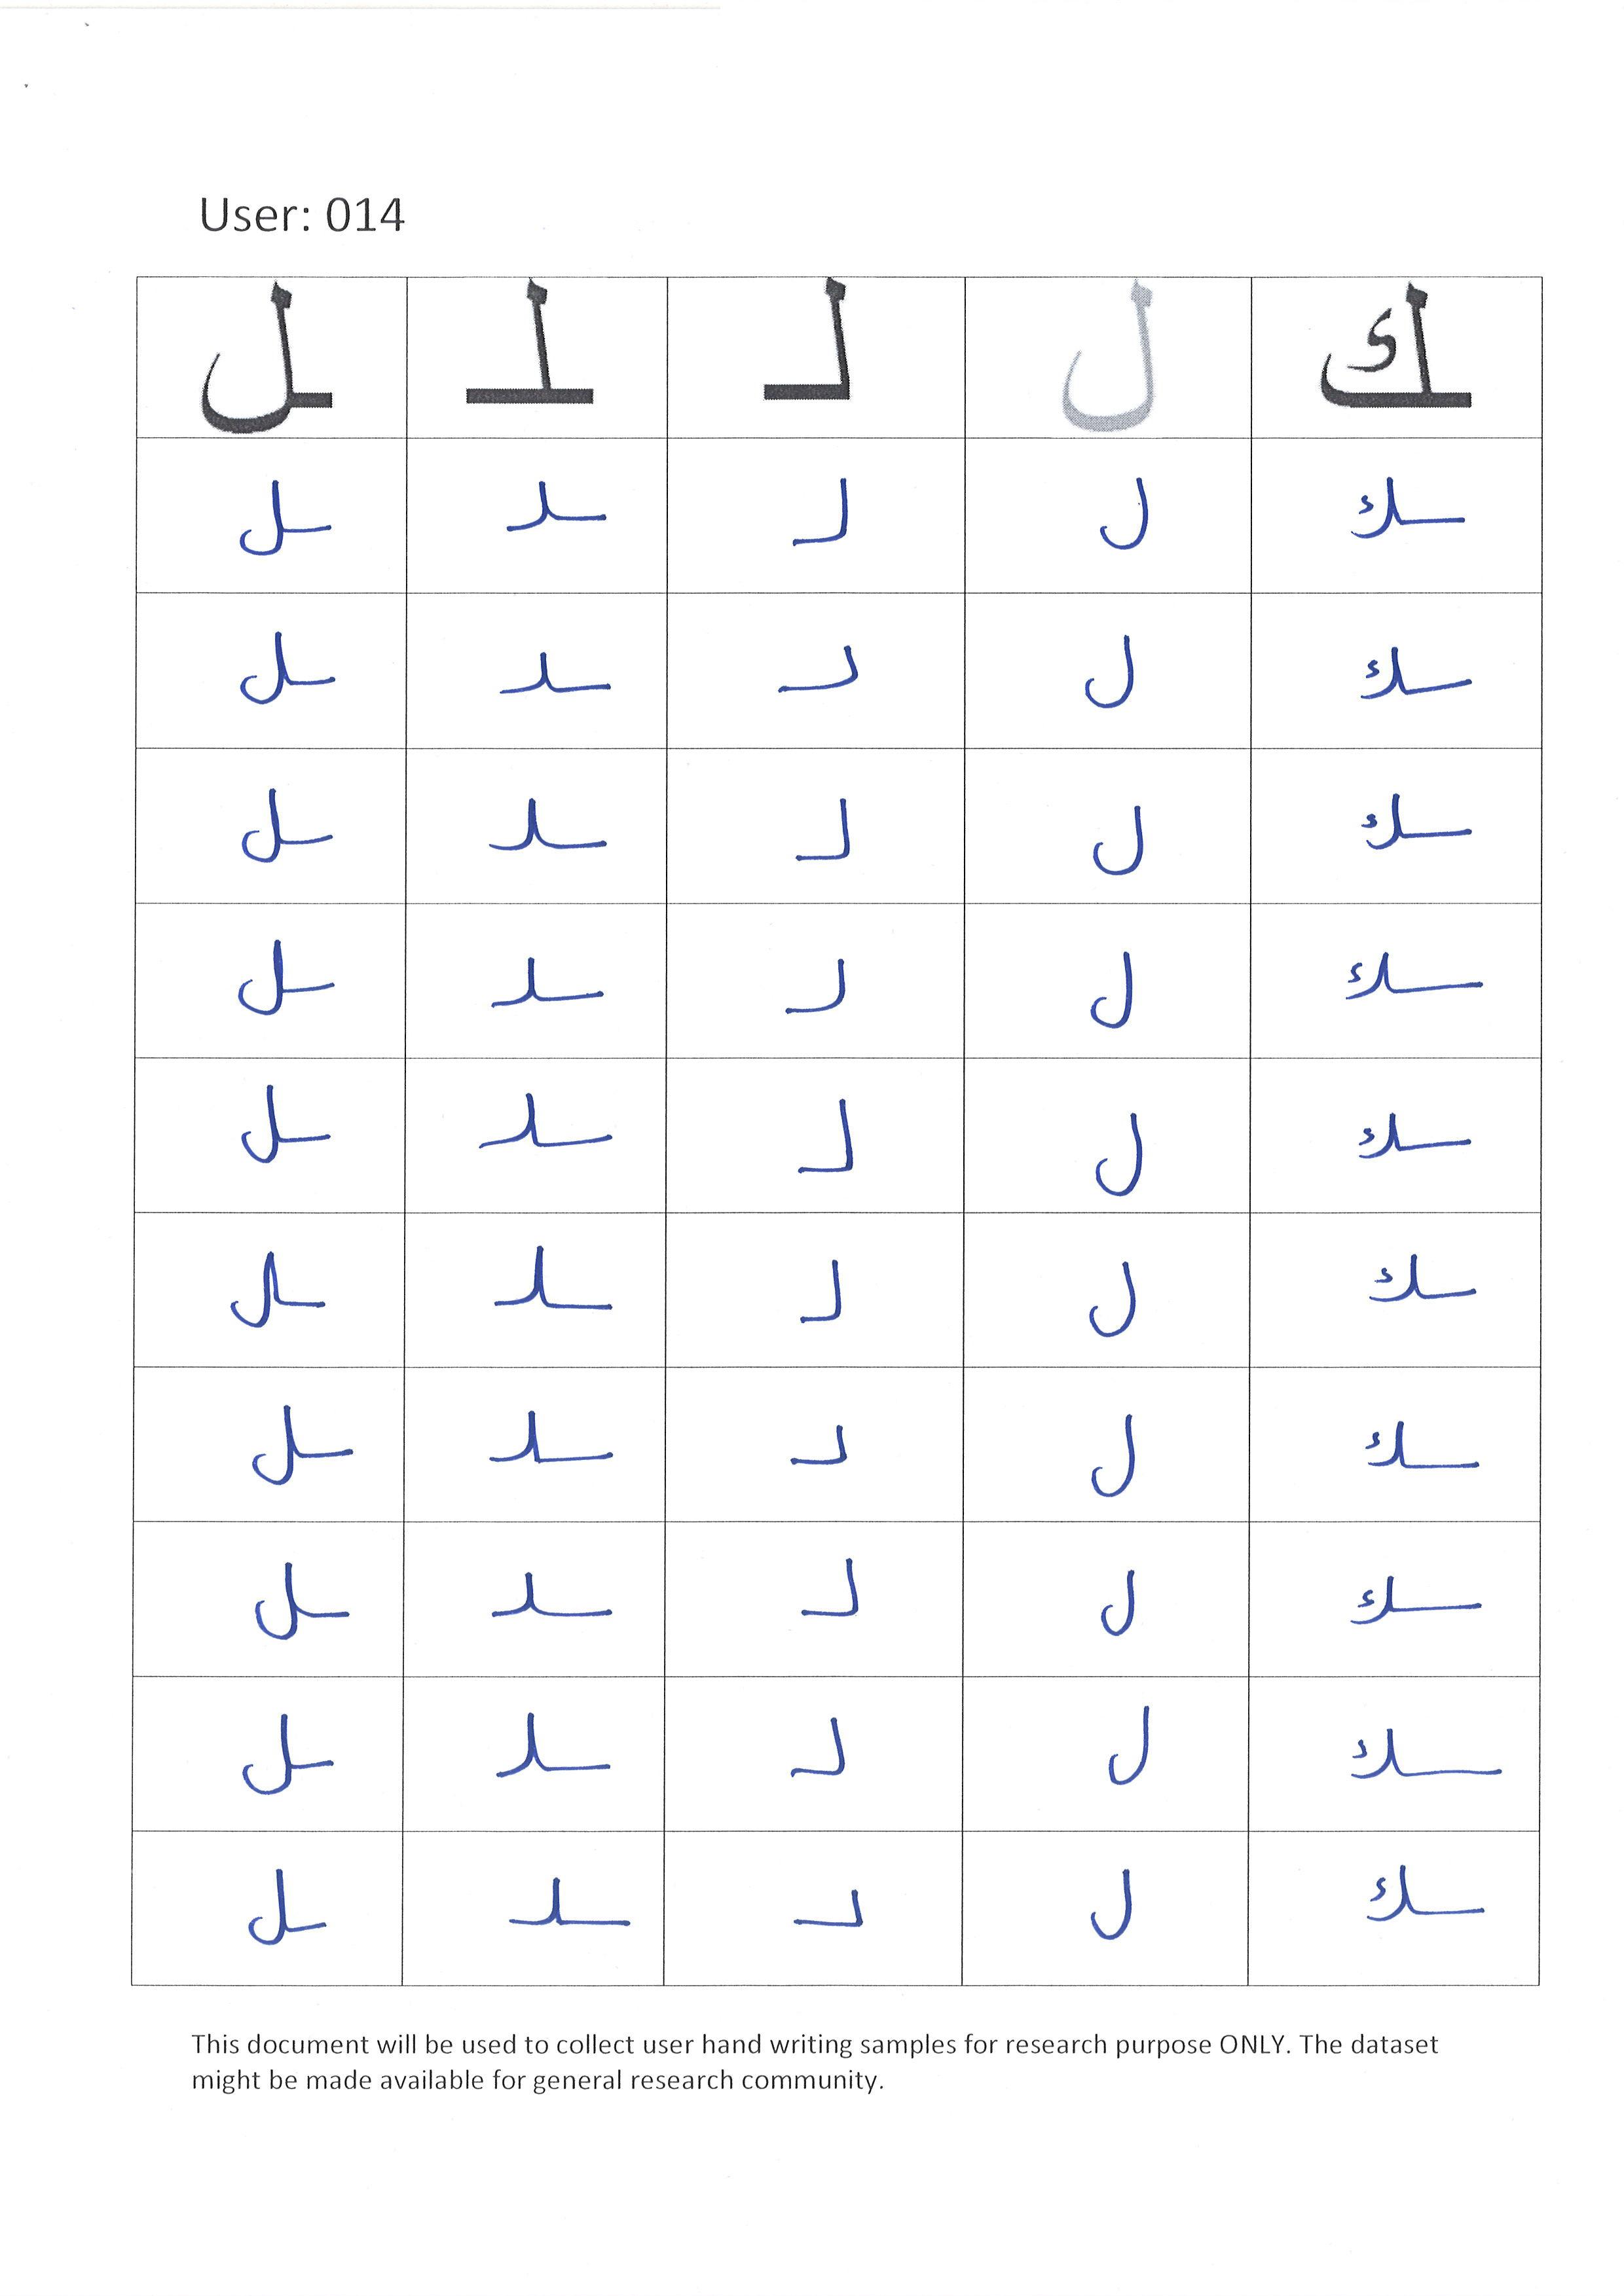 User: 014
ـل ـلـ لـ ل ـك
ـل ـلـ لـ ل ـك
ـل ـلـ لـ ل ـك
ـل ـلـ لـ ل ـك
ـل ـلـ لـ ل ـك
ـل ـلـ لـ ل ـك
ـل ـلـ لـ ل ـك
ـل ـلـ لـ ل ـك
ـل ـلـ لـ ل ـك
ـل ـلـ لـ ل ـك
ـل ـلـ لـ ل ـك
This document will be used to collect user hand writing samples for research purpose ONLY. The dataset
might be made available for general research community.